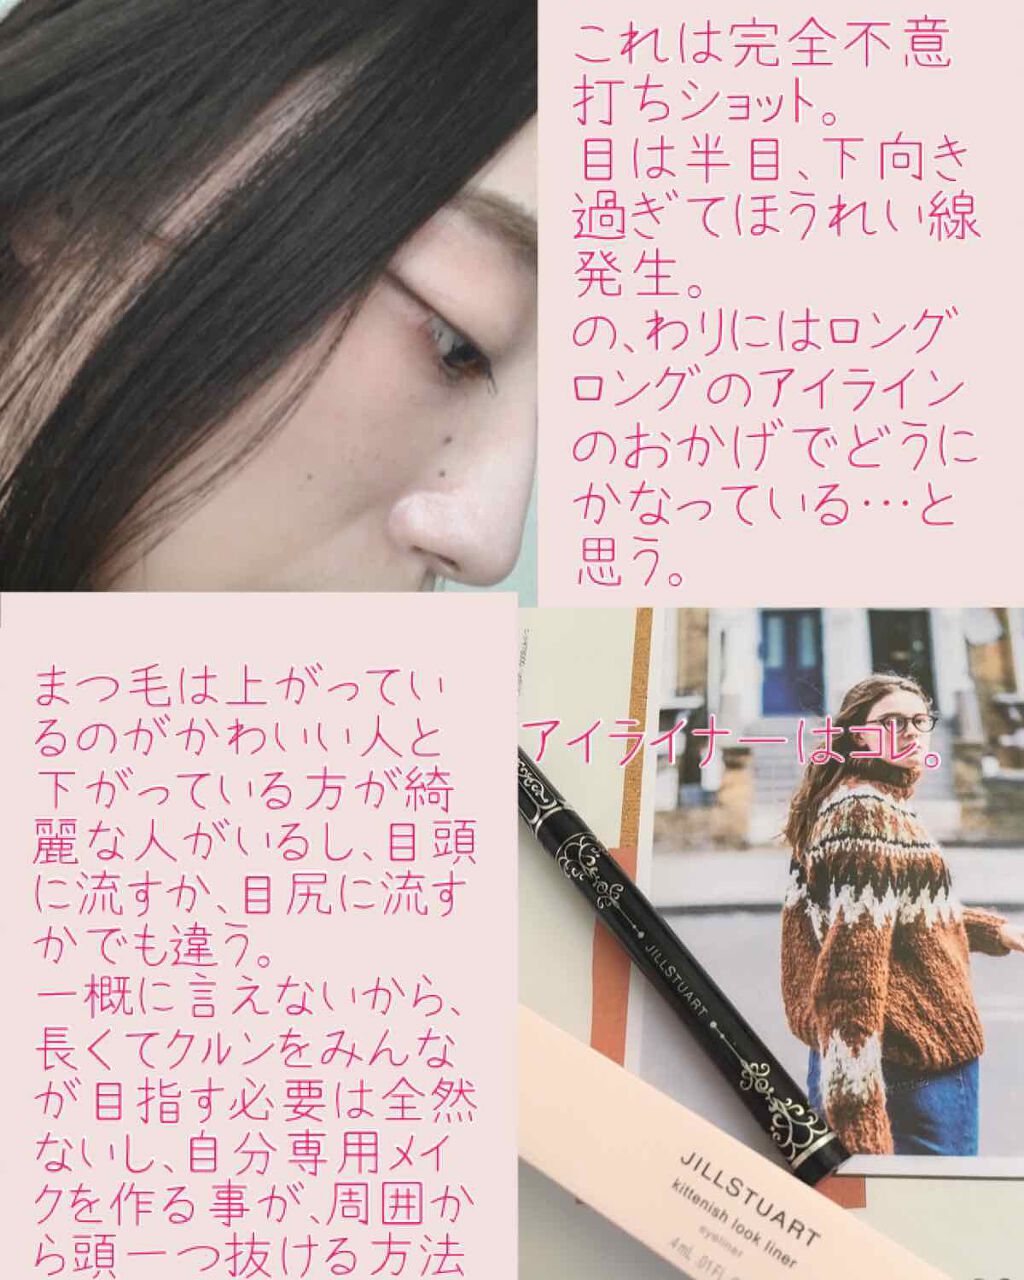 これは完全不意
打ちショット。
目は半目、下向き
過ぎてほうれい線
発生。
の、わりにはロング
ロングのアイライン
のおかげでどうに
かなっている…と
思う。
まつ毛は上がってい
るのがかわいい人と
下がっている方が綺
麗な人がいるし、目頭
に流すか、目尻に流す
かでも違う。
一概に言えないから、
長くてクルンをみんな
が目指す必要は全然
ないし、自分専用メイ
クを作る事が、周囲か
ら頭一つ抜ける方法
アイライナーはコレ。
JILLSTUART
JILLSTUART
kittenish look liner
eyeliner